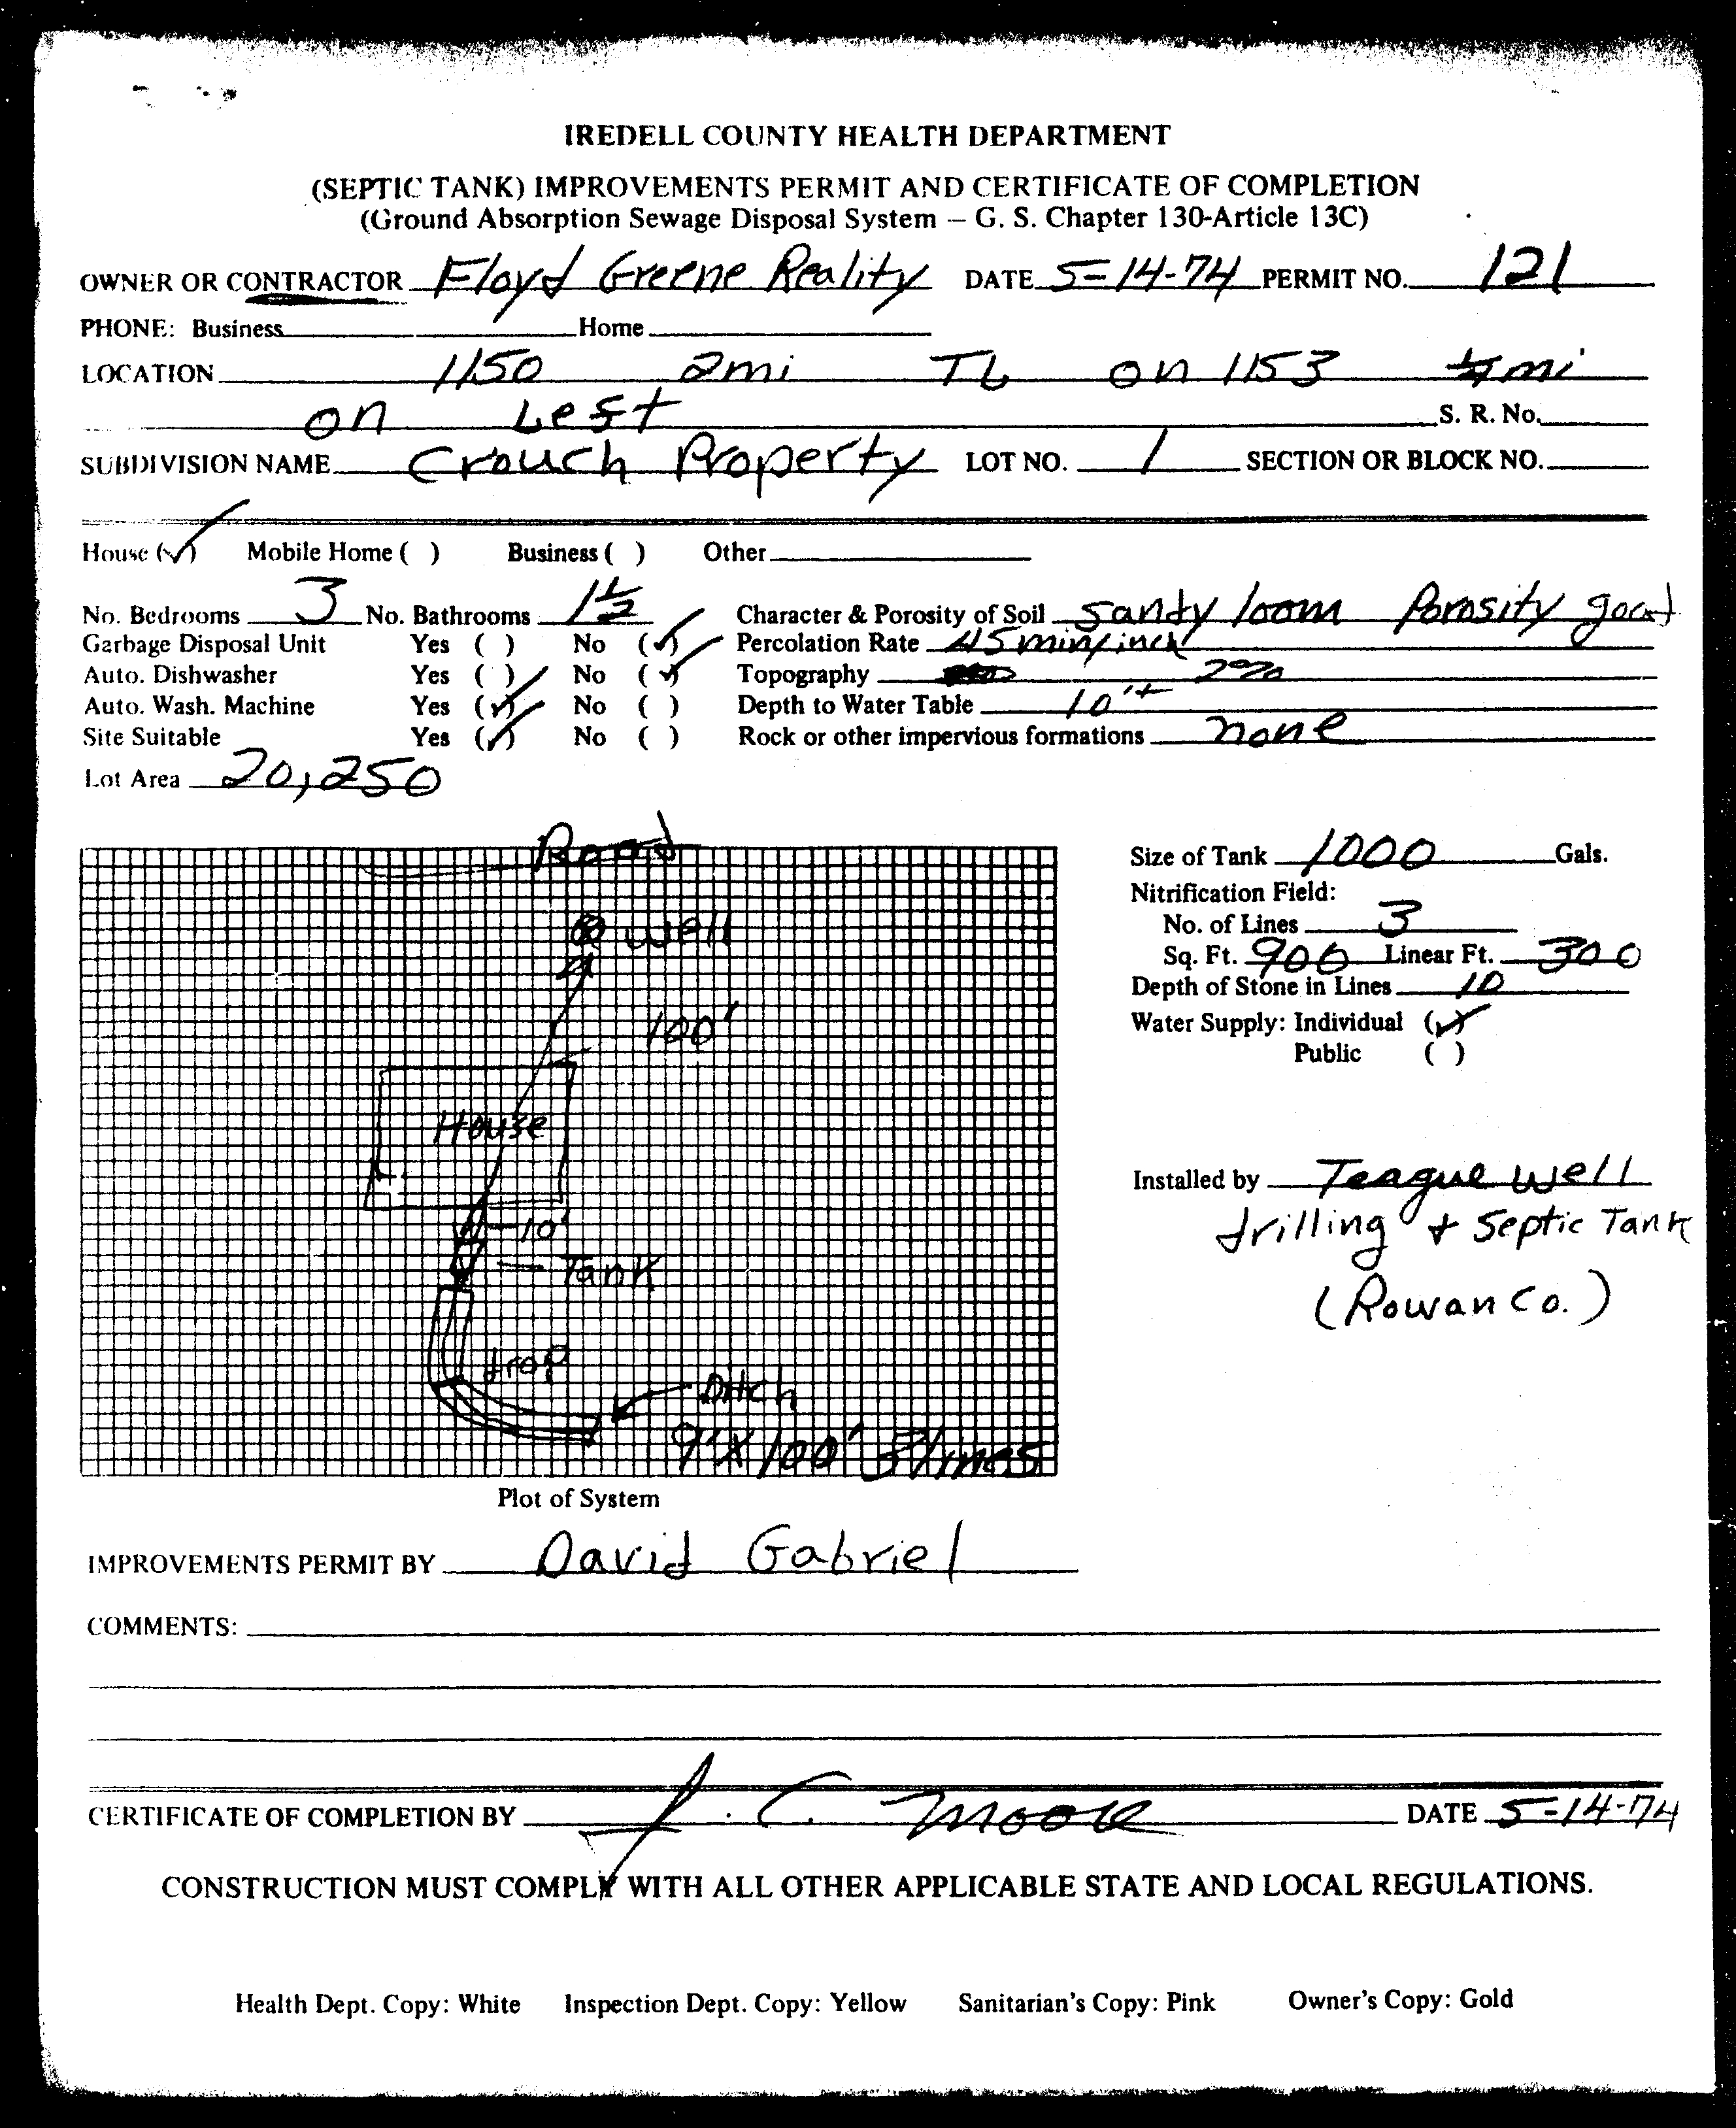 IREDELL COUNTY HEALTH DEPARTMENT
(SEPTIC TANK) IMPROVEMENTS PERMIT AND CERTIFICATE OF COMPLETION
(Ground Absorption Sewage Disposal System — G. S. Chapter 130-Article 13C)
OWNER OR CONTRACTOR Floyd Greene Reality DATE 5-14-74 PERMIT NO. 121
PHONE: Business Home
LOCATION 1150 2mi TL on 1153 mi
on Left S. R. No.
SUBDIVISION NAME Crouch Property LOT NO. 1 SECTION OR BLOCK NO.
House (✓) Mobile Home ( ) Business ( ) Other
No. Bedrooms 3 No. Bathrooms 1½ Character & Porosity of Soil Sandy loom Porosity good
Garbage Disposal Unit Yes ( ) No (✓) Percolation Rate 45 min/inch
Auto. Dishwasher Yes ( ) No (✓) Topography 2%
Auto. Wash. Machine Yes (✓) No ( ) Depth to Water Table 10'+
Site Suitable Yes (✓) No ( ) Rock or other impervious formations none
Lot Area 20,250
Road
Well
100'
House
10'
Tank
drop
Ditch
9'X100' 3 lines
Plot of System
Size of Tank 1000 Gals.
Nitrification Field:
No. of Lines 3
Sq. Ft. 900 Linear Ft. 300
Depth of Stone in Lines 10
Water Supply: Individual (✓)
Public ( )
Installed by Teague Well
drilling + Septic Tank
(Rowan Co.)
IMPROVEMENTS PERMIT BY David Gabriel
COMMENTS:
CERTIFICATE OF COMPLETION BY J. C. Moore DATE 5-14-74
CONSTRUCTION MUST COMPLY WITH ALL OTHER APPLICABLE STATE AND LOCAL REGULATIONS.
Health Dept. Copy: White Inspection Dept. Copy: Yellow Sanitarian's Copy: Pink Owner's Copy: Gold